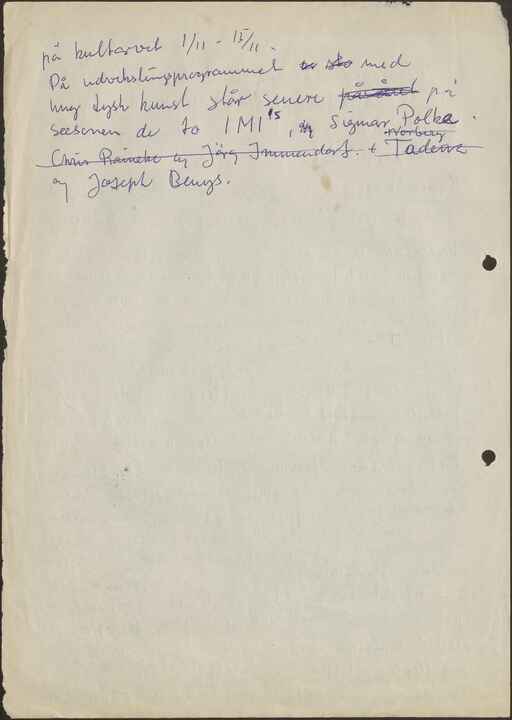 på kultorvet 1/11 - 15/11.
På udvekslingsprogrammet med
ung tysk kunst står senere på
sæsonen de to IMI's, Sigmar Polke.
Norberg
Chris Reinecke og Jörg Immendorf. + Tadeus
og Joseph Beuys.